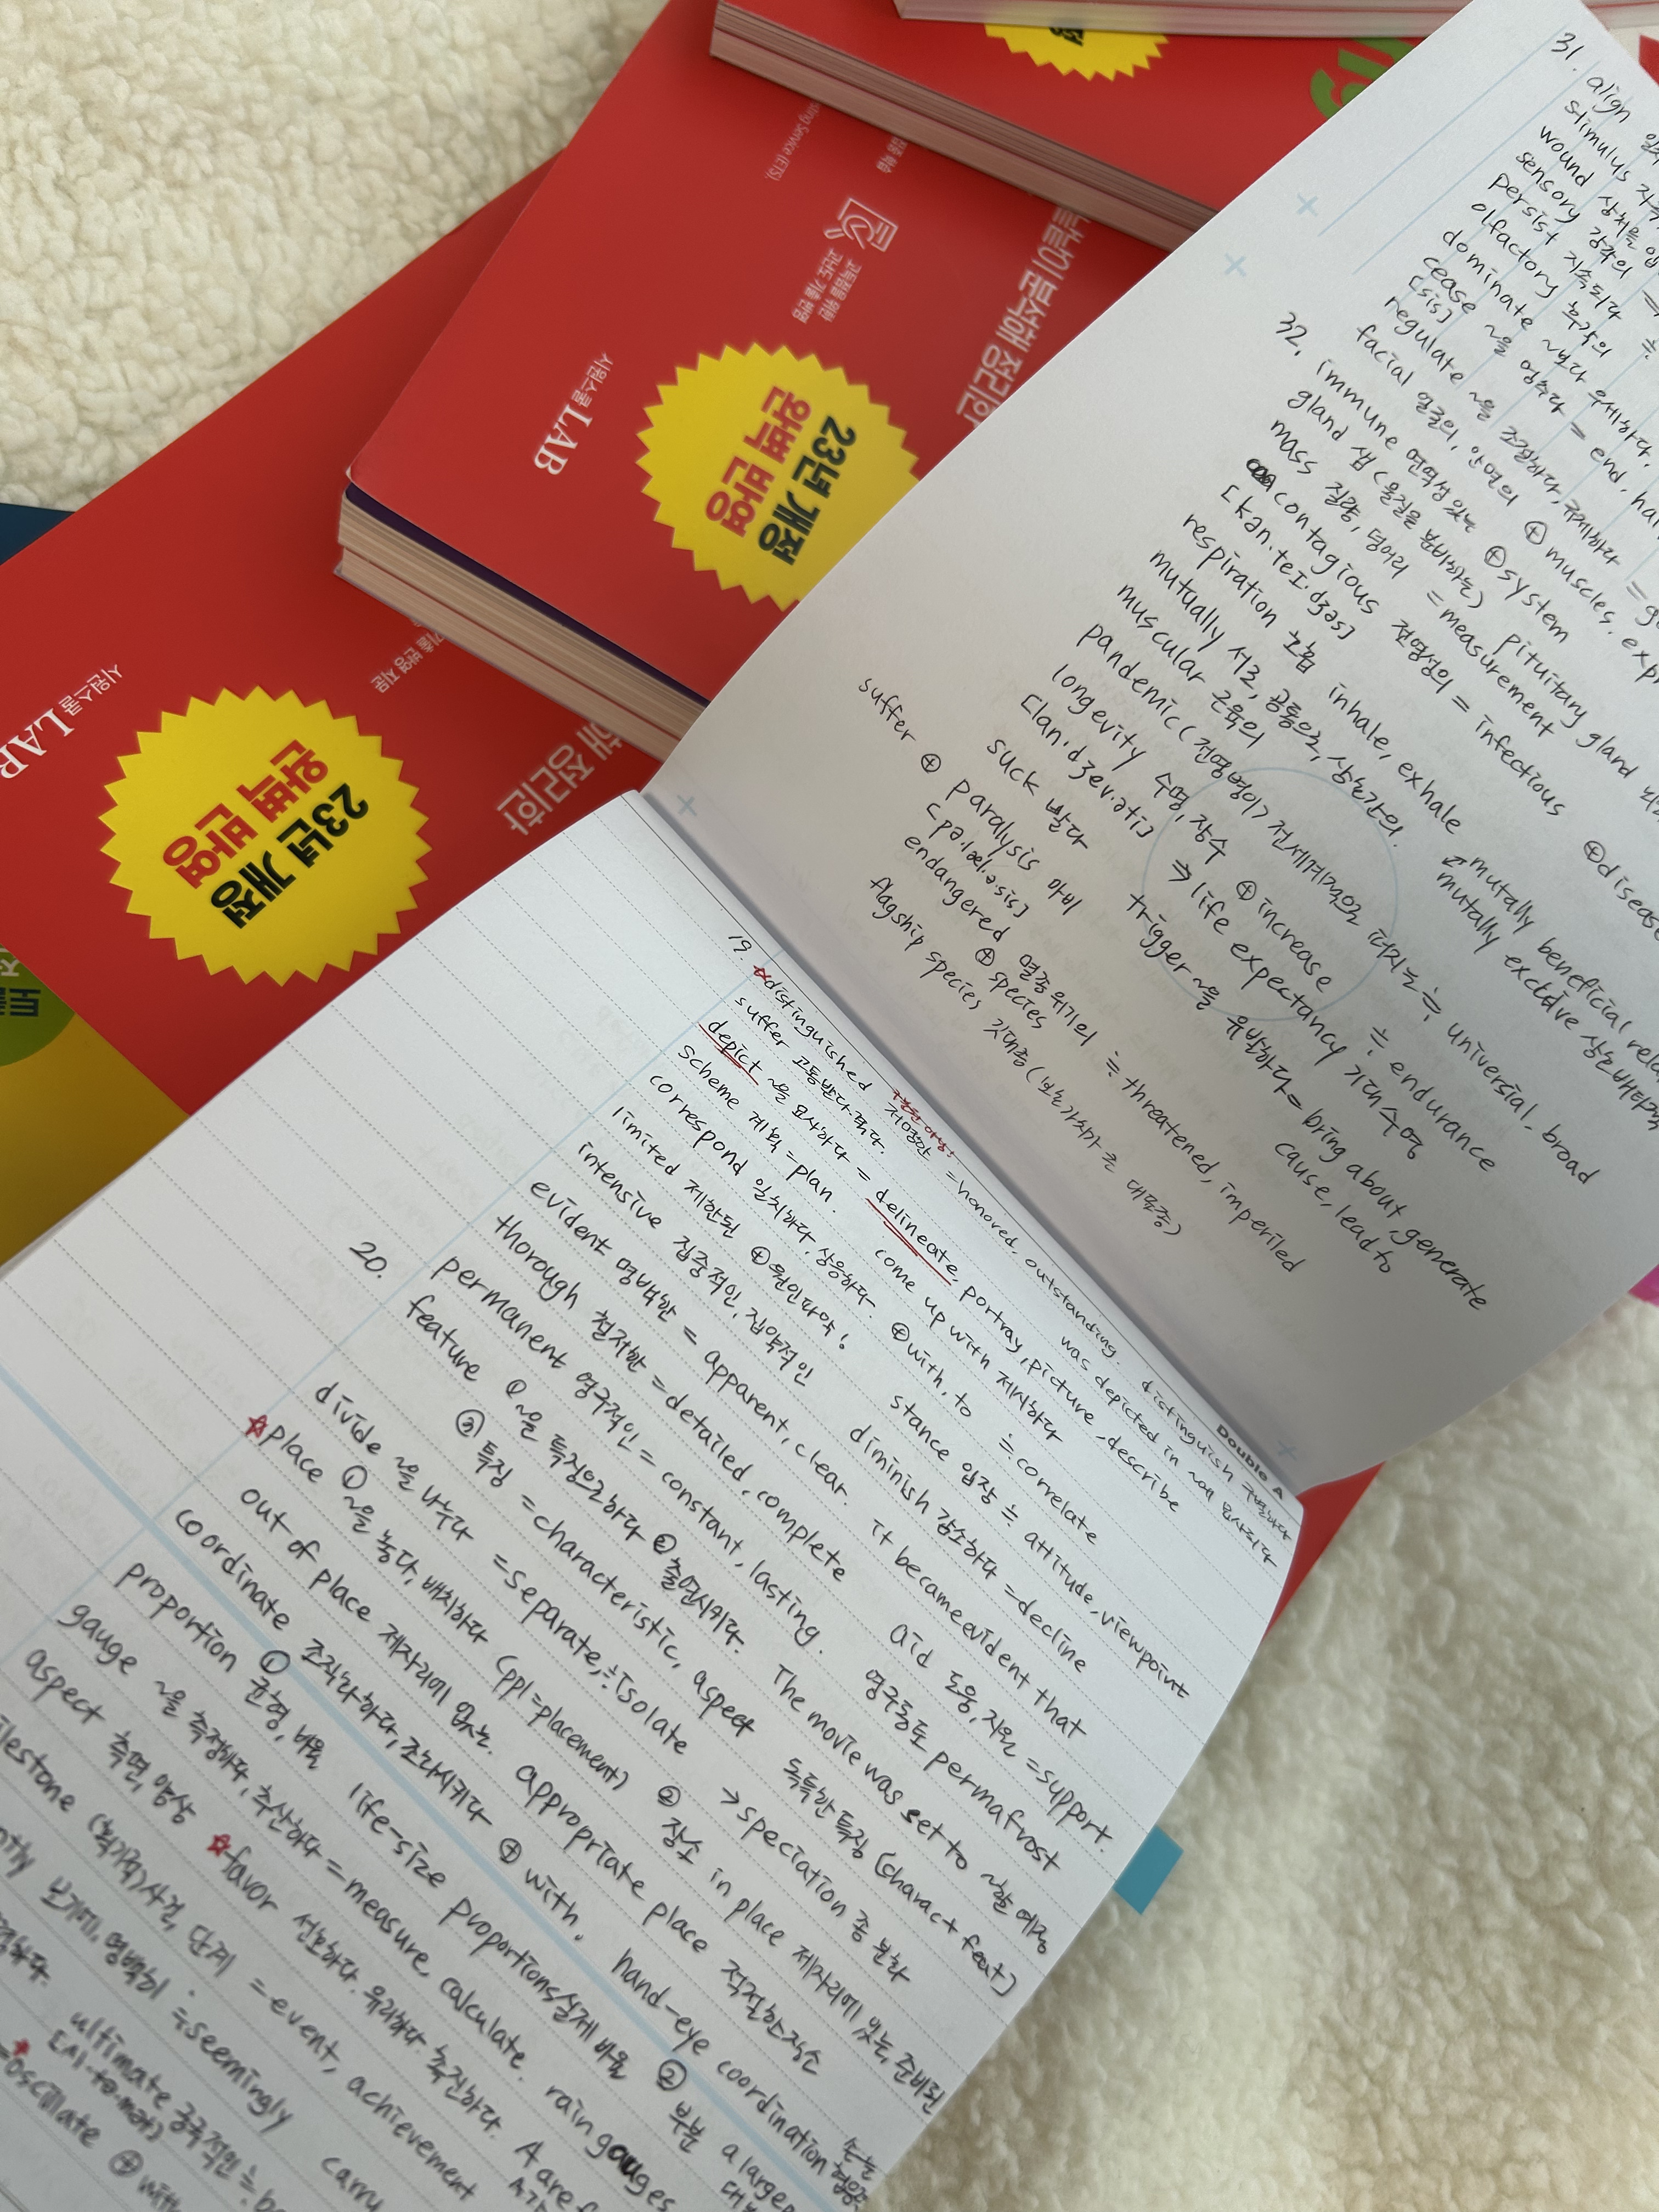 31. align
stimulus
wound 상처를
sensory 감각의 =
persist 지속되다 ≒
olfactory 후각의
dominate ~보다 우세하다.
cease ~을 멈추다 = end, hal
[sis]
regulate ~을 조절하다, 규제하다
facial 얼굴의, 안면의 ⊕ muscles. expr
32. immune 면역성 있는 ⊕ system
gland 샘 (물질을 분비하는) pituitary gland
mass 질량, 덩어리 = measurement
contagious 전염성의 = infectious ⊕ disease
[kən.teɪ.dʒəs]
respiration 호흡 inhale, exhale
mutually 서로, 공통으로, 상호간의. mutually beneficial rela
mutally exclusive 상호배타적
muscular 근육의
pandemic (전염병이) 전세계적으로 퍼지는 ≒ universial, broad
longevity 수명, 장수 ⊕ increase ≒ endurance
[lan.dʒev.əti] ⇒ life expectancy 기대 수명
suck 빨다 trigger ~을 유발하다 = bring about, generate
cause, lead to
suffer ⊕ paralysis 마비
[pə.læl.əsis]
endangered 멸종 위기의 ≒ threatened, imperiled
⊕ species
flagship species 깃대종 (보호가치가 큰 대표종)
Double A
19 distinguished 저명한 = honored, outstanding. distinguish 구별하다
구별된 아님!
suffer 고통받다. was depicted in ~에 묘사되다
depict ~을 묘사하다 = delineate, portray, picture, describe
scheme 계획 = plan. come up with 제시하다
correspond 일치하다, 상응하다. ⊕ with, to ≒ correlate
limited 제한된 ⊕ 원인다약! stance 입장 ≒ attitude, viewpoint
intensive 집중적인, 집약적인 diminish 감소하다 = decline
evident 명백한 = apparent, clear. It became evident that
thorough 철저한 = detailed, complete aid 도움, 지원 = support.
20. permanent 영구적인 = constant, lasting. 영구동토 permafrost
feature ① ~을 특징으로하다 ② 출연시키다. The movie was set to ~할 예정
③ 특징 = characteristic, aspect 독특한 특징 (charact + feat)
divide ~을 나누다 = separate, ≒ isolate → speciation 종 분화
place ① ~을 놓다, 배치하다 (ppl = placement) ② 장소 in place 제자리에 있는, 준비된
out of place 제자리에 없는. appropriate place 적절한장소
coordinate 조직화하다, 조화시키다 ⊕ with. hand-eye coordination 손눈 협응
proportion ① 균형, 비율 life-size proportions 실제 비율 ② 부분 a larger
gauge ~을 측정하다, 추산하다 = measure, calculate. rain gauges
aspect 측면, 양상 favor 선호하다. 유리하다 촉진하다. A are f
lestone (획기적) 사건, 단계 = event, achievement
ntly 보기에, 명백히 ≒ seemingly carry
ultimate 궁극적인 ≒ ba
oscillate ⊕ with
시원스쿨 LAB
23년 개정
완벽 반영
해 정리한
시원스쿨 LAB
23년 개정
완벽 반영
낱이 분석해 정리한
고득점을 위한
고난도 기출 반영
ting Service (ETS).